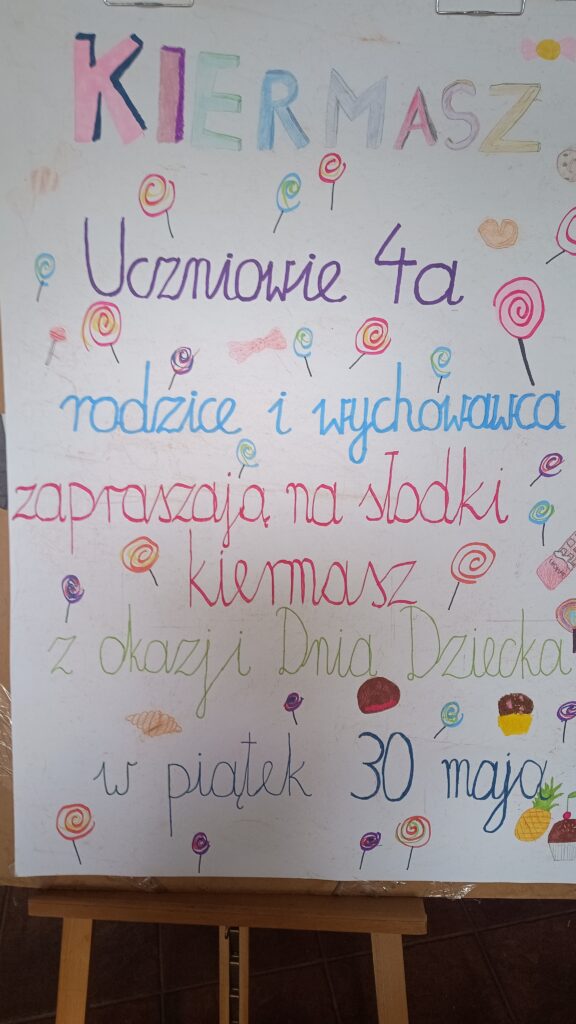 KIERMASZ
Uczniowie 4a
rodzice i wychowawca
zapraszają na słodki
kiermasz
z okazji Dnia Dziecka
w piątek 30 maja